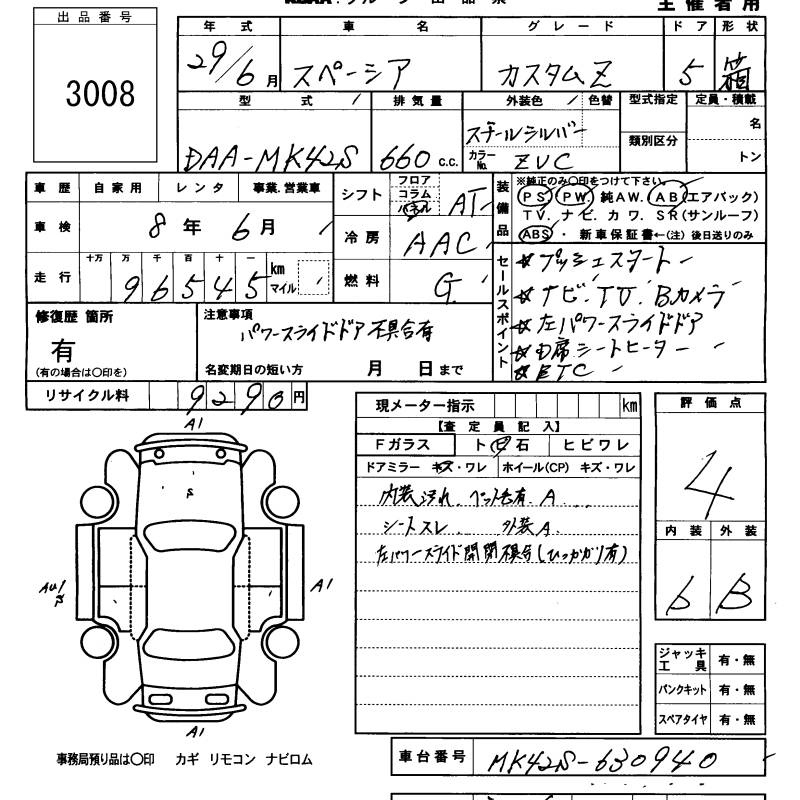 主催者用
出品番号
3008
年式 車名 グレード ドア 形状
29/6月 スペーシア カスタムZ 5 箱
型式 排気量 外装色 色替 型式指定 定員・積載
DAA-MK42S 660 c.c. スチールシルバー カラーNo. ZVC 類別区分 名 トン
車歴 自家用 レンタ 事業.営業車
車検 8年 6月
走行 十万 万 千 百 十 一
96545 km マイル
シフト フロア コラム パネル AT
冷房 AAC
燃料 G
装備品
※純正のみ〇印をつけて下さい。
PS PW. 純AW. AB(エアバック)
TV. ナビ. カワ. SR(サンルーフ)
ABS ・ 新車保証書←(注) 後日送りのみ
セールスポイント
☆プッシュスタート
☆ナビ.TV.Bカメラ
☆左パワースライドドア
☆D席シートヒーター
☆ETC
修復歴 箇所
有
(有の場合は〇印を)
注意事項
パワースライドドア不具合有
名変期日の短い方 月 日まで
リサイクル料 9290円
現メーター指示 km
【査定員記入】
Fガラス トビ石 ヒビワレ
ドアミラー キズ・ワレ ホイール(CP) キズ・ワレ
内装汚れ. ペット毛有 A
シートスレ. 外装A.
左パワースライド開閉不具合(ひっかかり有)
評価点
4
内装 外装
b B
A1
A1
A1
ジャッキ工具 有・無
パンクキット 有・無
スペアタイヤ 有・無
事務局預り品は〇印 カギ リモコン ナビロム
車台番号 MK42S-630940